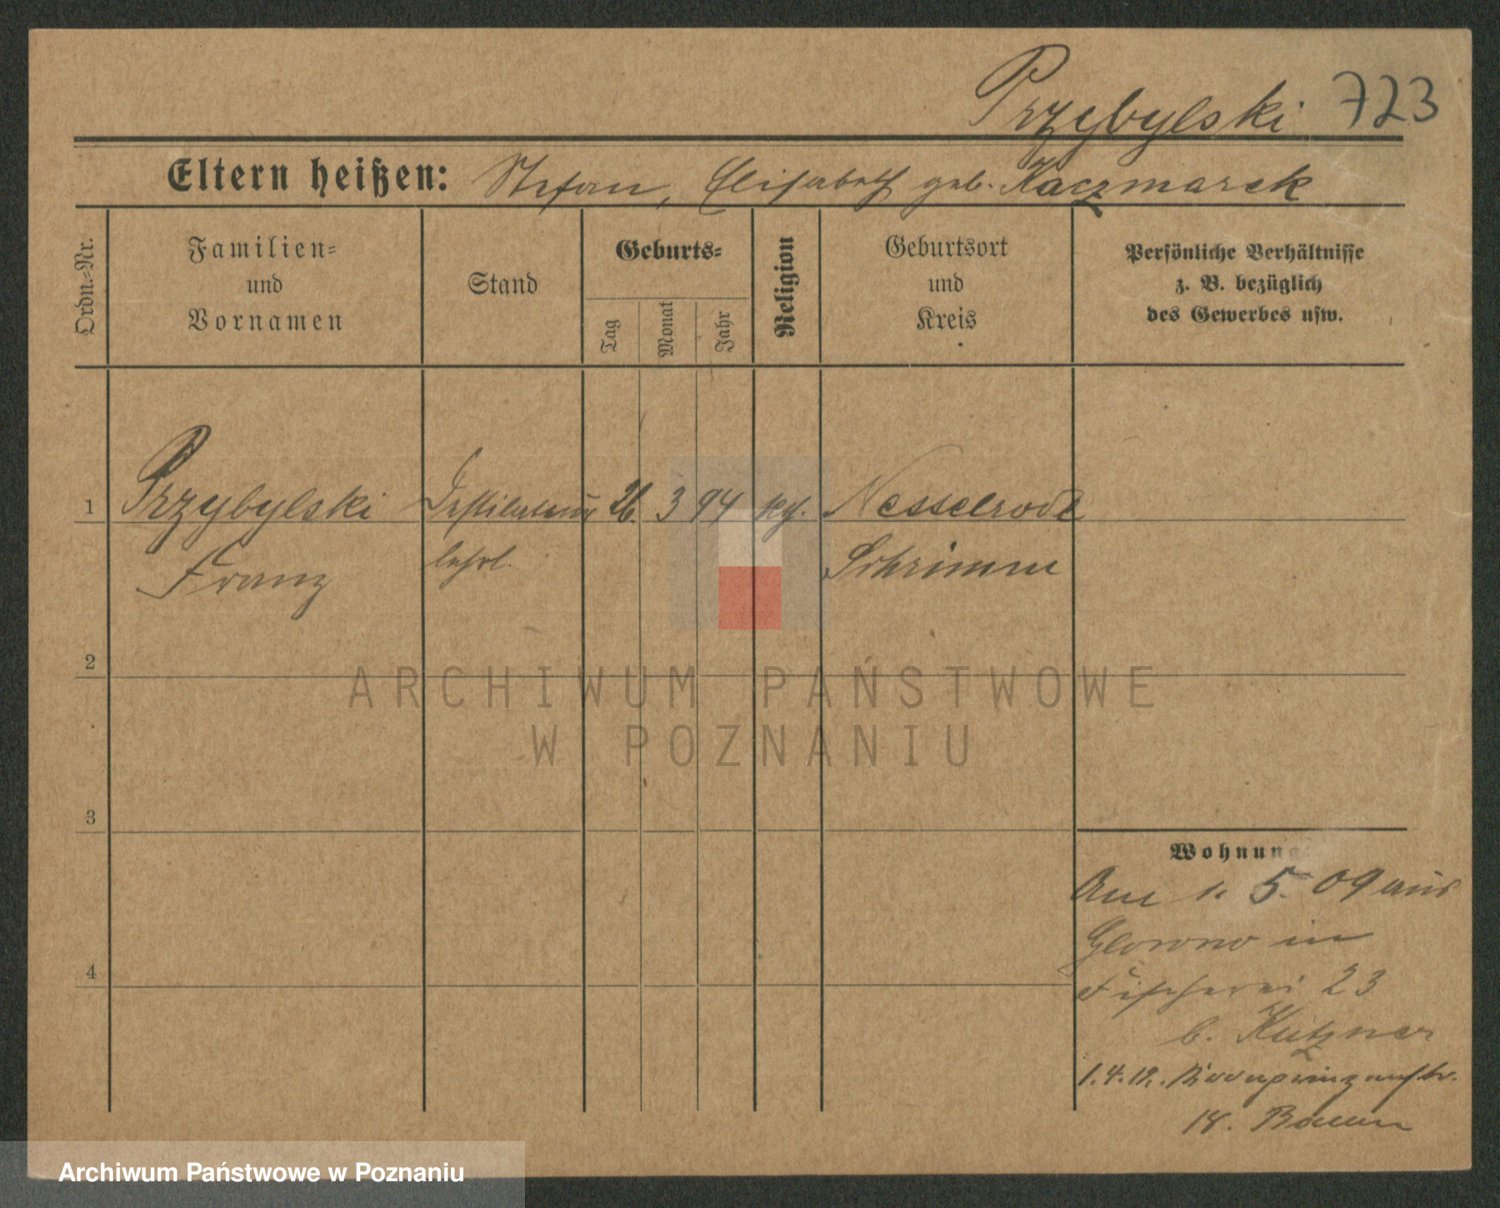 Przybylski 723
Eltern heißen: Stefan, Elisabeth geb. Kaczmarek
Ordn.-Nr.
Familien-
und
Vornamen
Stand
Geburts-
Tag
Monat
Jahr
Religion
Geburtsort
und
Kreis
Persönliche Verhältnisse
z. B. bezüglich
des Gewerbes usw.
1 Przybylski 26. 3 94 kth. Nesselrode
Franz lehrl. Schrimm
2
3
4
Wohnung
Am 1. 5. 09 aus
Glowno in
Fischerei 23
b. Kutzner
1.4.12. Kronprinzenstr.
18.
ARCHIWUM PAŃSTWOWE
W POZNANIU
Archiwum Państwowe w Poznaniu